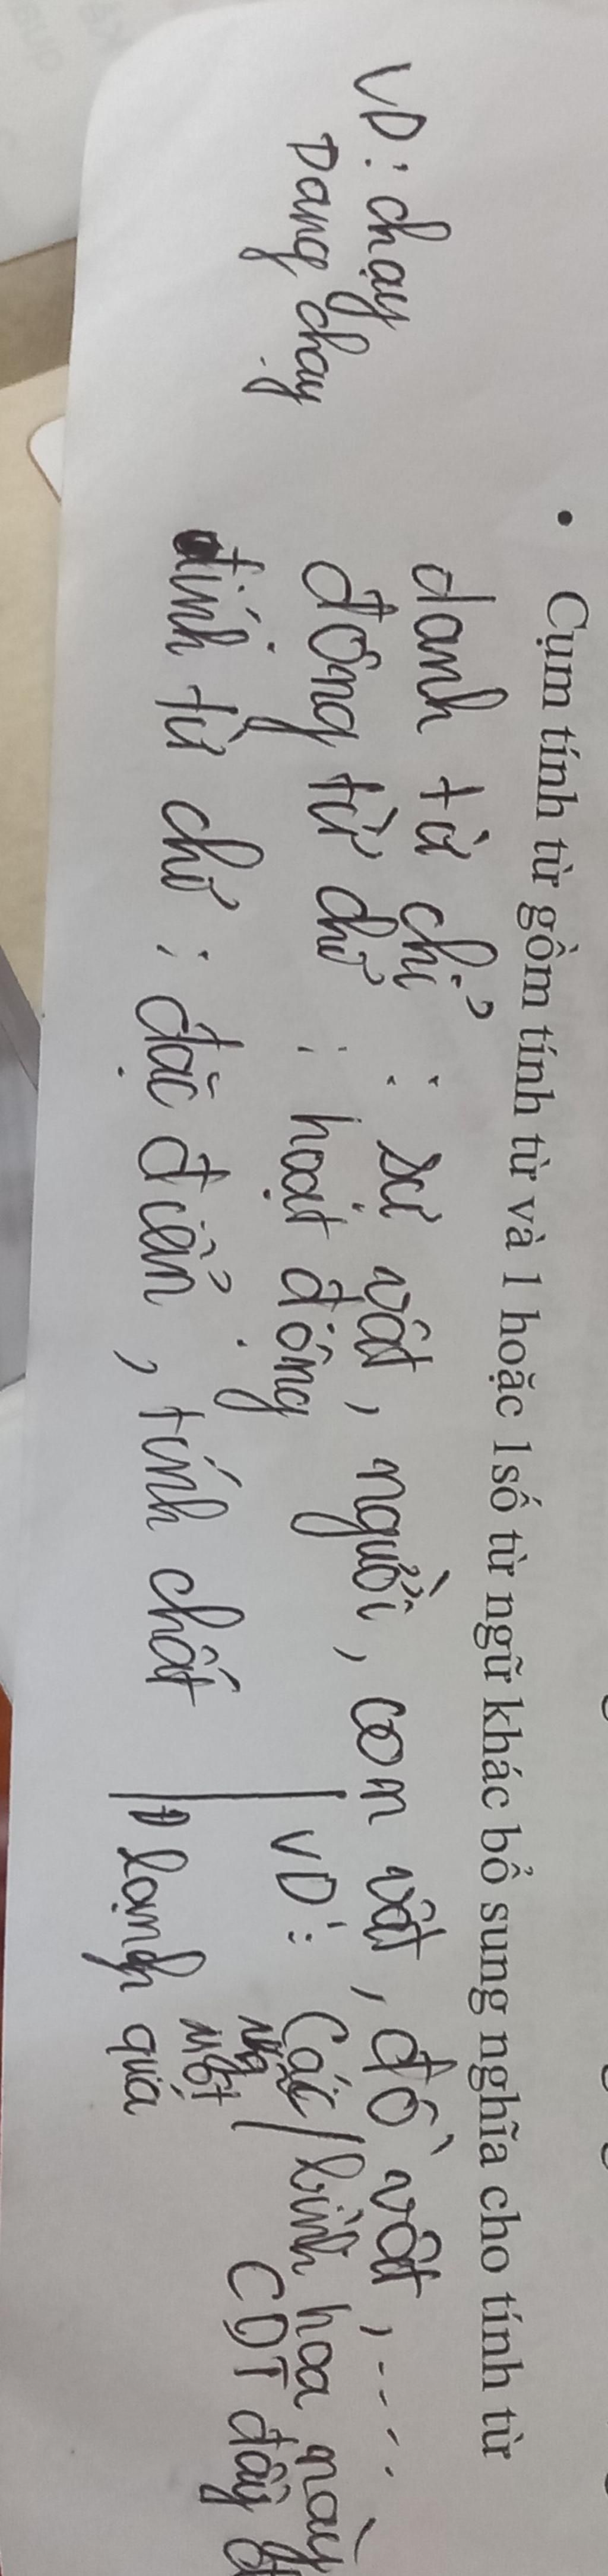 • Cụm tính từ gồm tính từ và 1 hoặc 1số từ ngữ khác bổ sung nghĩa cho tính từ
danh từ chỉ : sự vật, người, con vật, đồ vật,....
VD: chạy
động từ chỉ : hoạt động
Đang chạy
VD: Các / bình hoa này
Một
CDT đầy
tính từ chỉ : đặc điểm, tính chất
lạnh quá